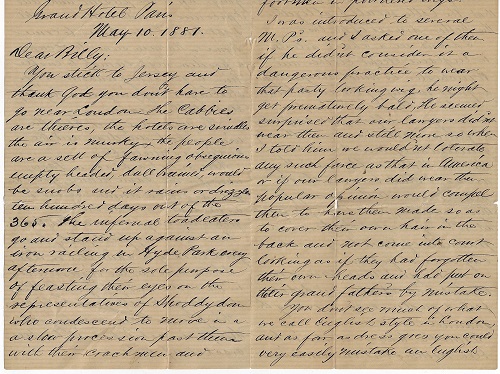 Grand Hotel Paris
May 10. 1881.
Dear Billy:
You stick to Jersey and
thank God you don't have to
go near London. The Cabbies
are thieves, the hotels are swindles
the air is murky the people
are a sett of fawning obsequious
empty headed, dull brained, would
be snobs and it rains or drizzles
ten hundred days out of the
365. The infernal toadeaters
go and stand up against an
iron railing in Hyde Park every
afternoon for the sole purpose
of feasting their eyes on the
representatives of Shoddydom
who condescend to move in a
a slow procession past them
with their coachmen and
footmen in
I was introduced to several
M.P's. and I asked one of them
if he didn't consider it a
dangerous practice to wear
that party looking wig. he might
get prematurely bald. He seemed
surprised that our lawyers didn't
wear them and still more so when
I told him we wouldn't tolerate
any such farce as that in America
or if our lawyers did wear them
popular opinion would compel
them to have them made so as
to cover their own hair in the
back and not come into court
looking as if they had forgotten
their own heads and had put on
their grand fathers by mistake.
You don't see much of what
we call English style in London,
but as far as dress goes you could
very easily mistake an English